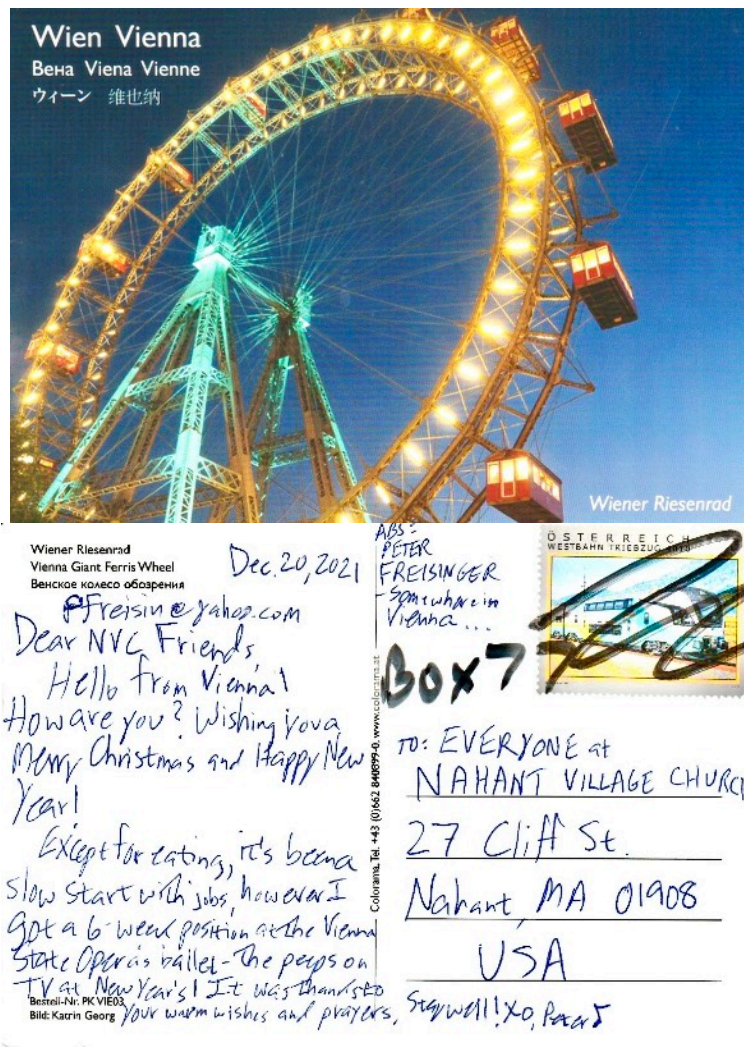 Wien Vienna
Вена Viena Vienne
ウィーン 维也纳
Wiener Riesenrad
Wiener Riesenrad
Vienna Giant Ferris Wheel
Венское колесо обозрения
Dec. 20, 2021
PFreisin@yahoo.com
Dear NVC Friends,
Hello from Vienna!
How are you? Wishing you a
Merry Christmas and Happy New
Year!
Except for eating, it's been a
slow start with jobs, however I
got a 6-week position at the Vienna
State Opera's ballet - The peeps on
TV at New Year's! It was thanks to
your warm wishes and prayers.
Stay well! XO, Peter
Bestell-Nr. PK VIE03
Bild: Katrin Georg
Colorama, Tel. +43 (0)662 840899-0, www.colorama.at
ABS:
PETER
FREISINGER
-Somewhere in
Vienna...
BOX 7
ÖSTERREICH
WESTBAHN TRIEBZUG
TO: EVERYONE at
NAHANT VILLAGE CHURCH
27 Cliff St.
Nahant, MA 01908
USA